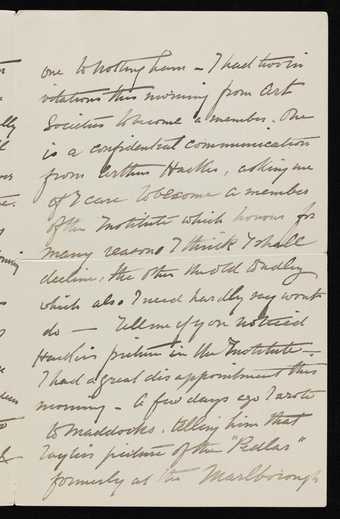 one to Nottingham – I had two in
vitations this morning from Art
Societies to become a member. One
is a confidential communication
from Arthur Hacker, asking me
if I care to become a member
of the Institute which honour for
many reasons I think I shall
decline, the other the old Dudley
which also I need hardly say wont
do — Tell me if you noticed
Hacker's picture in the Institute –
I had a great disappointment this
morning – A few days ago I wrote
to Maddocks, telling him that
Tayler's picture of the "Pedlar"
formerly at the Marlborough